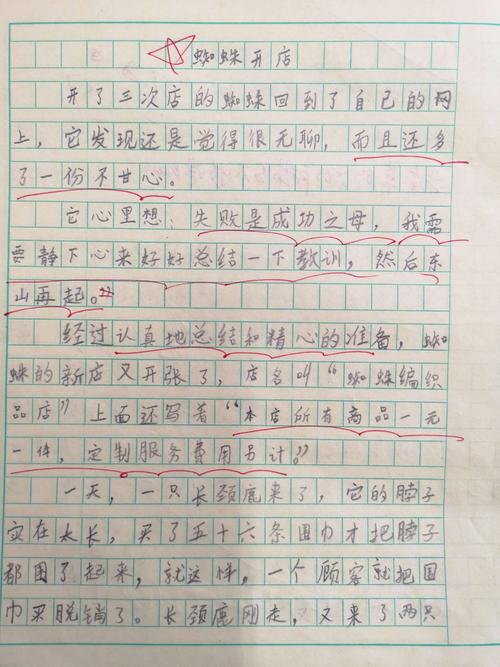 蜘蛛开店
开了三次店的蜘蛛回到了自己的网
上,它发现还是觉得很无聊,而且还多
了一份不甘心。
它心里想:失败是成功之母,我需
要静下心来好好总结一下教训,然后东
山再起。
经过认真地总结和精心的准备,蜘
蛛的新店又开张了,店名叫“蜘蛛编织
品店”上面还写着“本店所有商品一元
一件,定制服务费用另计。”
一天,一只长颈鹿来了,它的脖子
实在太长,买了五十六条围巾才把脖子
都围了起来,就这样,一个顾客就把围
巾买脱销了。长颈鹿刚走,又来了两只